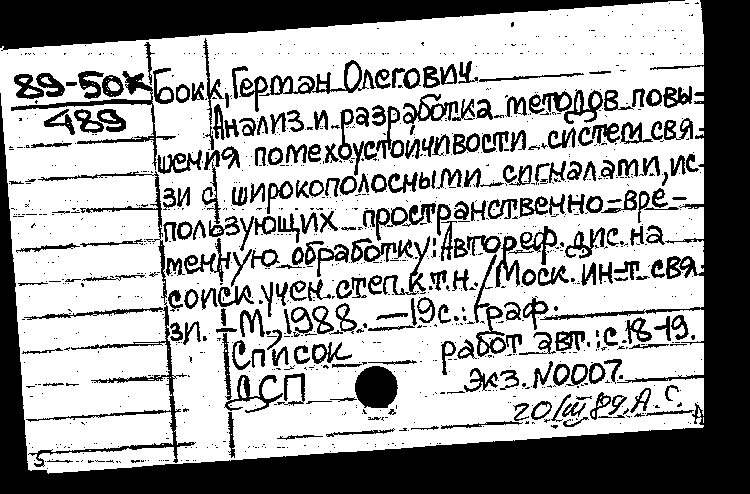 89-50К Бокк, Герман Олегович.
489 Анализ и разработка методов повы=
шения помехоустойчивости систем свя=
зи с широкополосными сигналами, ис-
пользующих пространственно=вре-
менную обработку: Автореф. дис. на
соиск. учен. степ. к.т.н. / Моск. ин-т свя=
зи. - М., 1988. - 19с.: граф.
Список работ авт.: с.18-19.
ДСП Экз. N0007.
20/III 89. А.С.
5